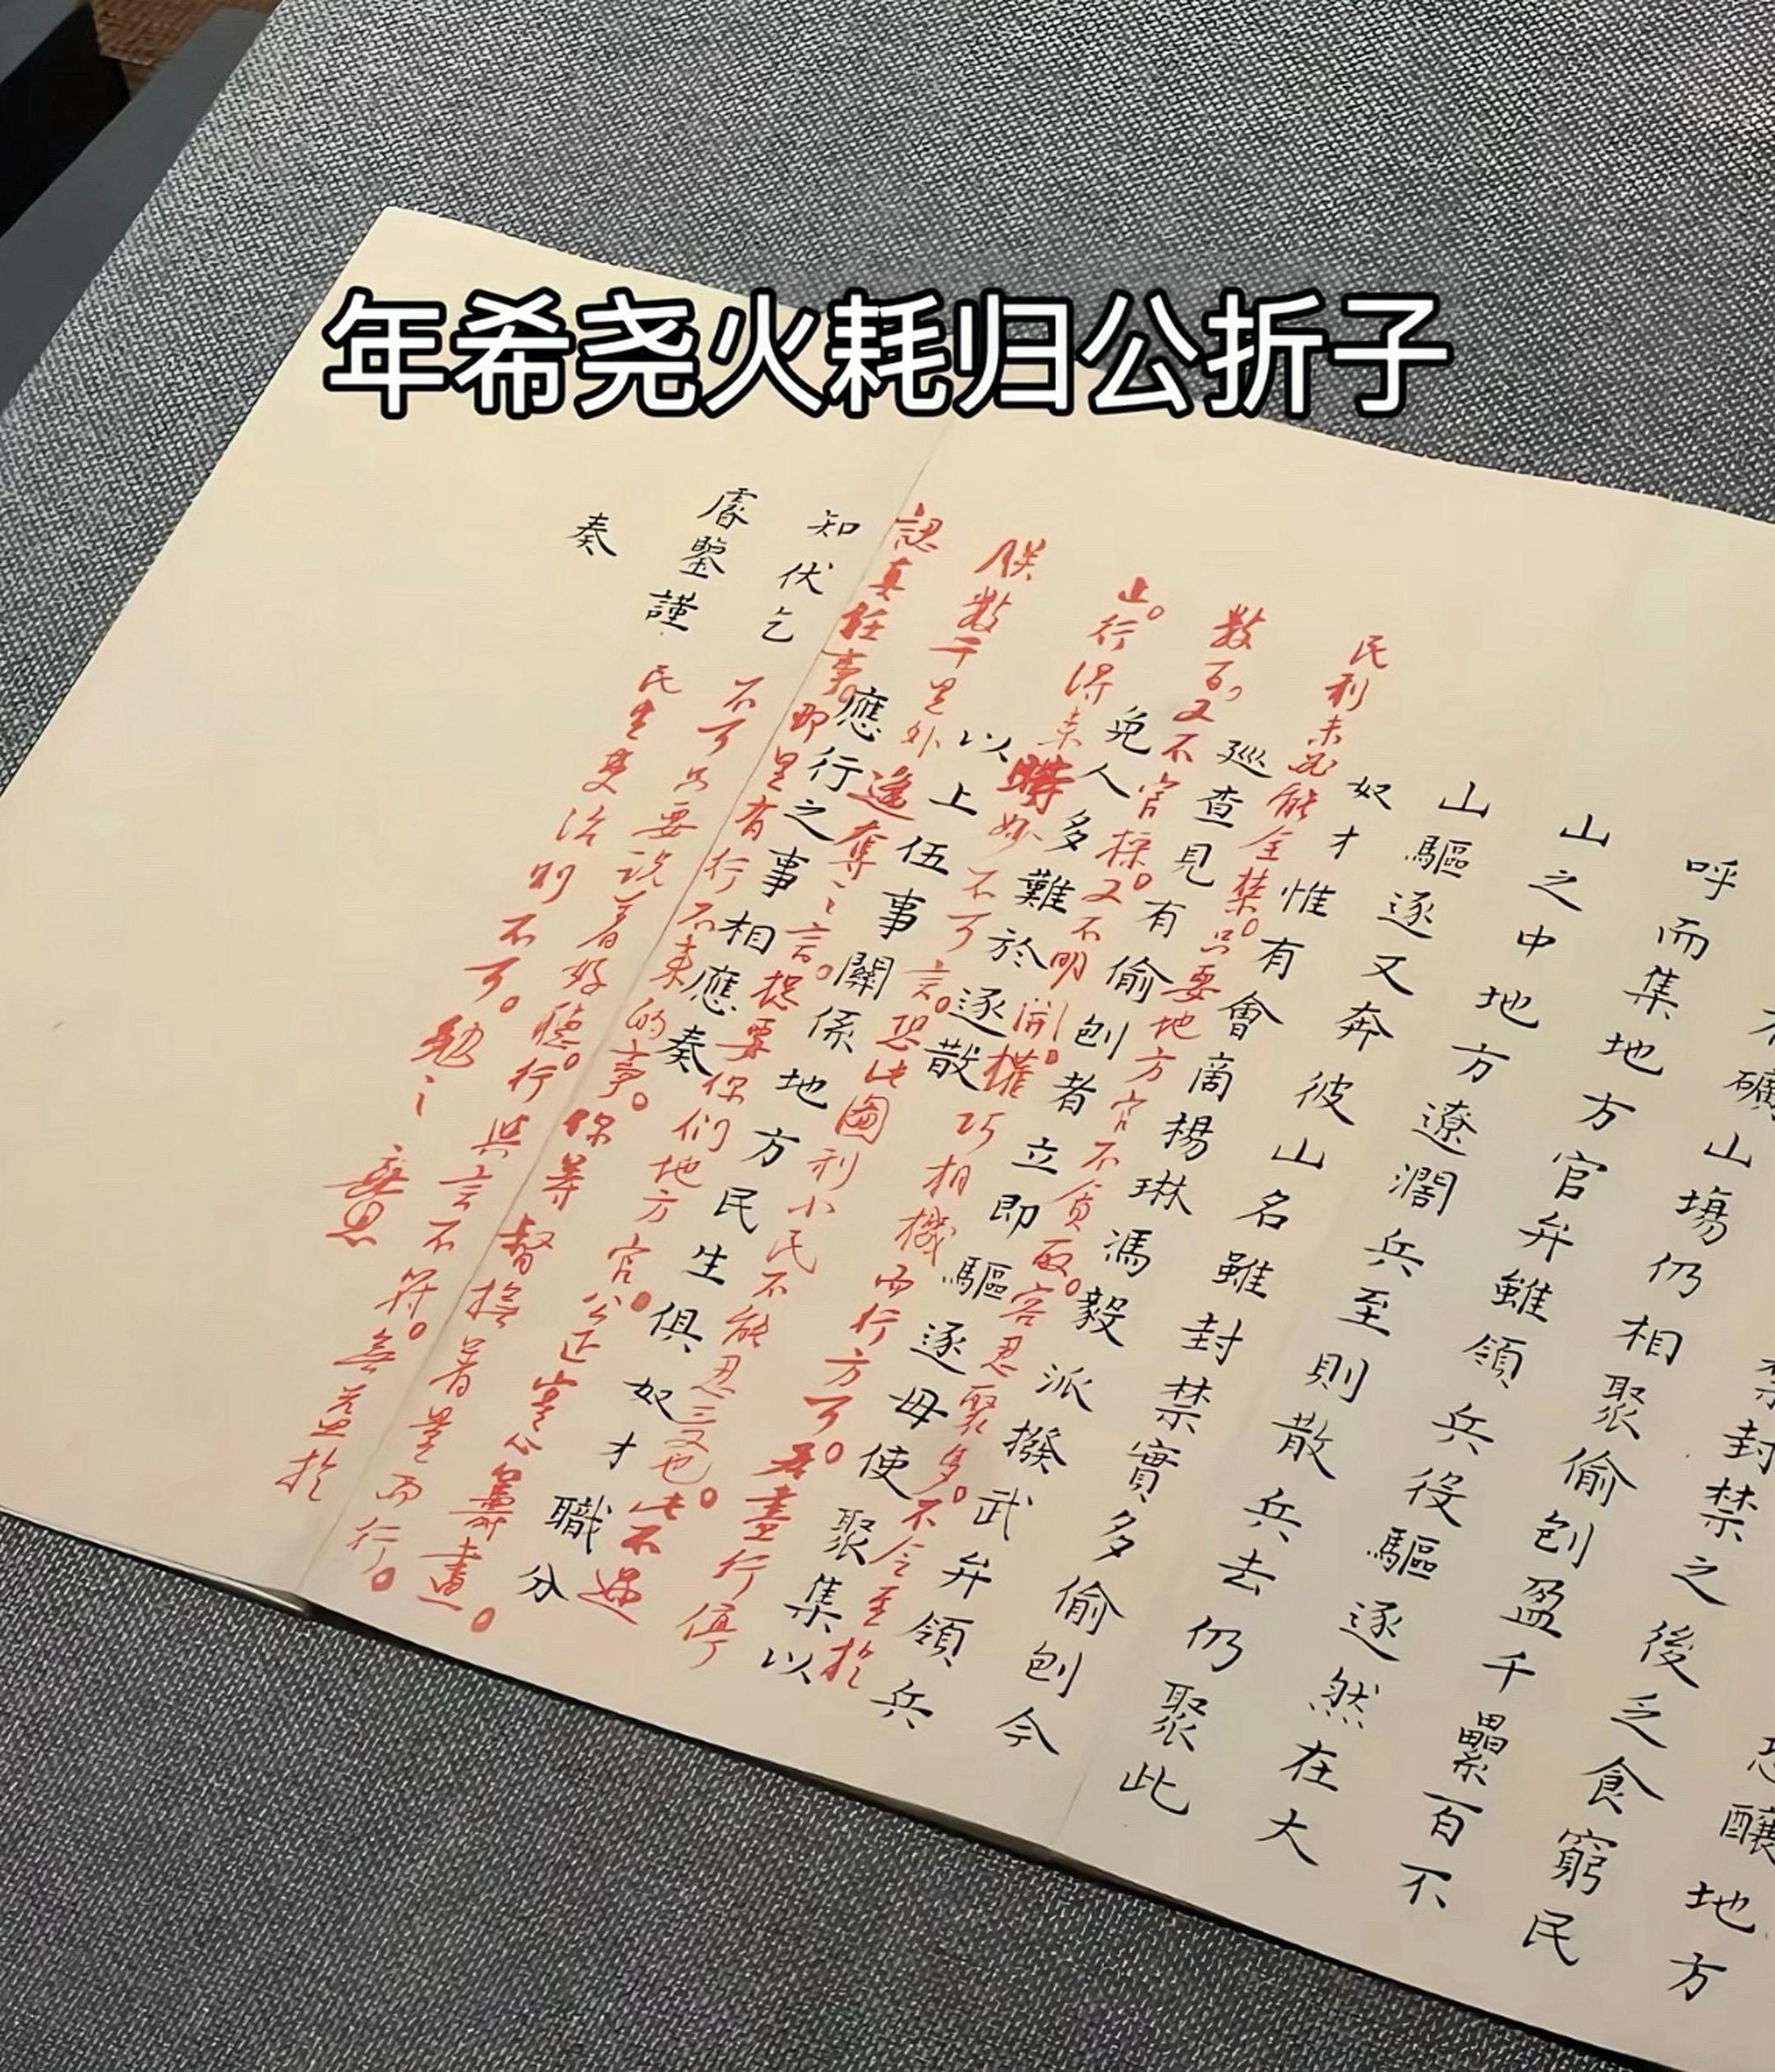 年希尧火耗归公折子
封禁之後乏食窮民
恐釀地方
礦山塲仍相聚偷刨盈千累百不
呼而集地方官弁雖領兵役驅逐然在大
山之中地方遼濶兵至則散兵去仍聚此
山驅逐又奔彼山名雖封禁實多偷刨今
奴才惟有會啇楊琳馮毅派撥武弁領兵
巡查見有偷刨者立即驅逐毋使聚集以
免人多難於逐散
以上伍事關係地方民生俱奴才職分
應行之事相應奏
知伏乞
睿鑒謹
奏
民利未必能全禁。只要地方官不貪取。容忍聚多。不令至於
數百,又不官採。又不明開。權巧相機而行方可。若盡行停
止。行得來時妙不可言。恐此圖利小民不能忍受也。此不過
朕數千里外遙奪之言。總要你們地方官。公正實心籌畫。
認真任事。即是有行不來的事。你等督撫著量而行。
不可只要說着好聽。行與言不符。無益於
民生吏治則不可。勉之